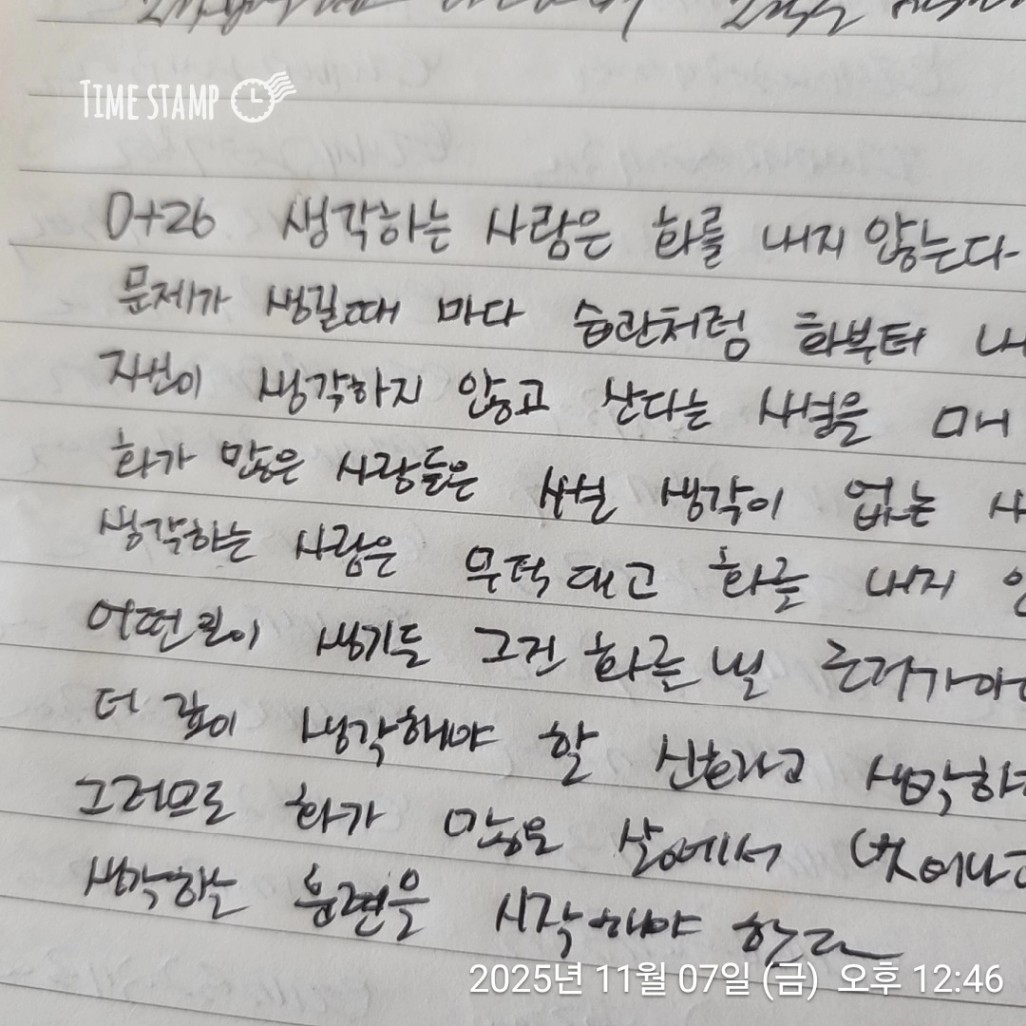 TIME STAMP
D+26 생각하는 사람은 화를 내지 않는다
문제가 생길때 마다 습관처럼 화부터 내
자신이 생각하지 않고 산다는 사실을 매
화가 많은 사람들은 사실 생각이 없는 사
생각하는 사람은 무턱대고 화를 내지 않
어떤일이 생기든 그건 화를 낼 근거가아
더 깊이 생각해야 할 신호라고 생각하
그러므로 화가 많은 삶에서 벗어나고
생각하는 훈련을 시작해야 한다
2025년 11월 07일 (금) 오후 12:46